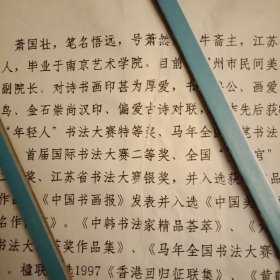 萧国壮，笔名悟远，号萧然 牛斋主，江苏
人，毕业于南京艺术学院。目前 州市民间美
副院长。对诗书画印甚为厚爱， 公、画爱
鸟、金石崇尚汉印、偏爱古诗对联， 先后获
“年轻人”书法大赛特等奖、马年全国 书
首届国际书法大赛二等奖、全国“
二奖、江苏省书法大赛银奖，并入选
作品》《中国书画报》发表并入选《中国
名作 》。《中韩书法家精品荟萃》、
书法大 奖作品集》、《马年全国书法大赛
。楹联 选1997《香港回归征联集》、